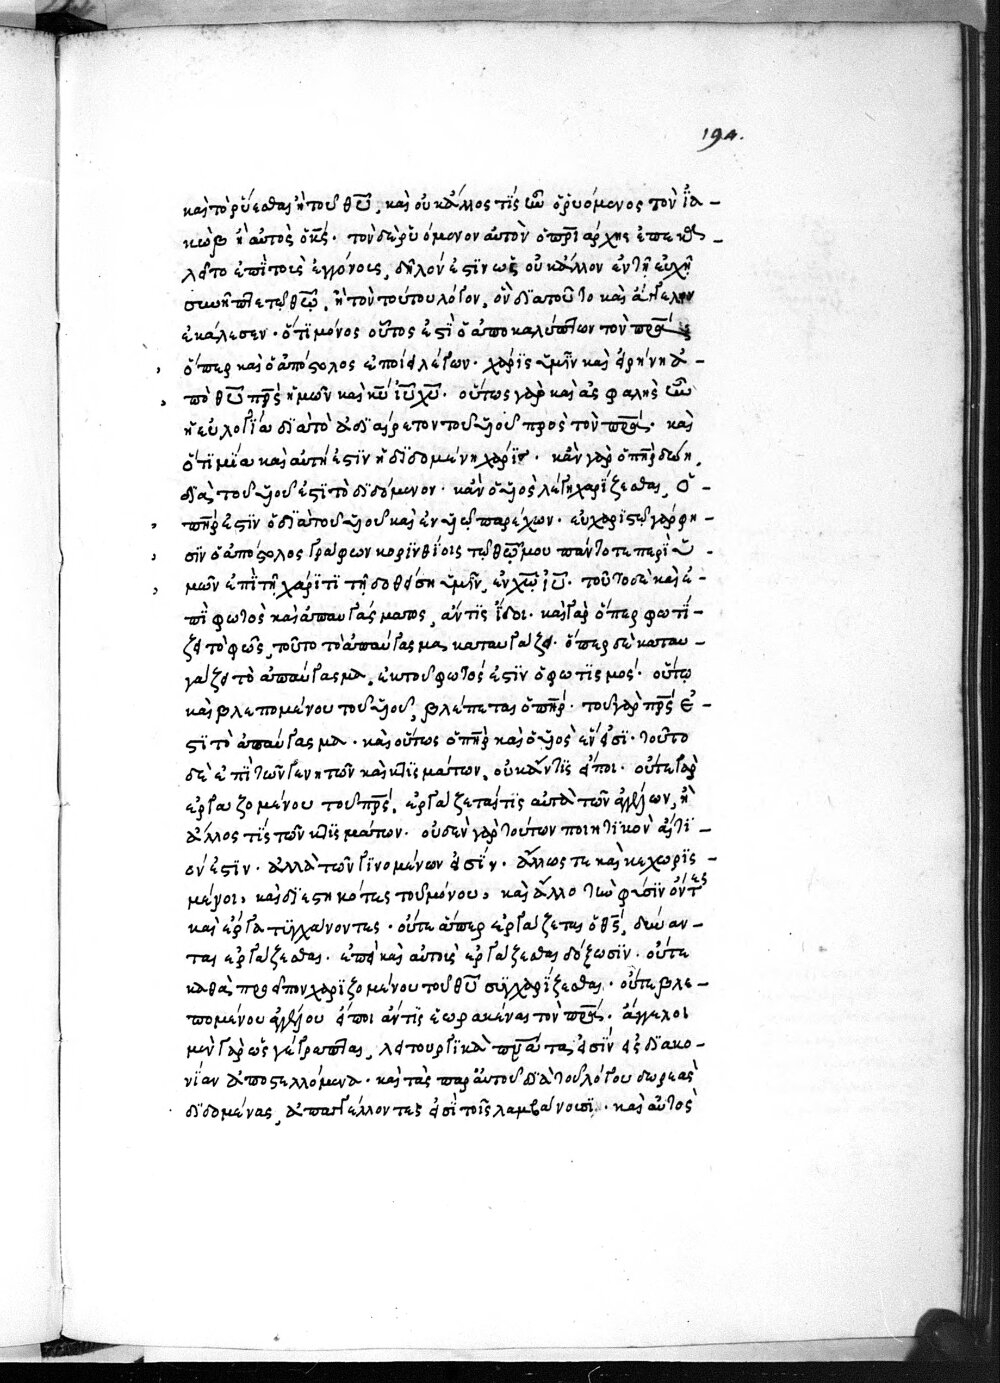 194.
καὶ τὸ ῥύεσθαι ἢ τοῦ θῦ, καὶ οὐκ ἄλλος τίς ὢν ὁ ῥυόμενος τὸν ἰα-
κὼβ ἢ αὐτὸς ὁ θς. τὸν δὲ ῥυόμενον αὐτὸν ὁ πατριάρχης ἐπεκα-
λεῖτο ἐπὶ τοῖς ἐγγόνοις, δῆλόν ἐστιν ὡς οὐκ ἄλλον ἐν τῇ εὐχῇ
συνῆπτε τῷ θῶ, ἢ τὸν τούτου λόγον, ὃν διὰ τοῦτο καὶ ἄγγελον
ἐκάλεσεν. ὅτι μόνος οὗτός ἐστι ὁ ἀποκαλύπτων τὸν πρα
ὅπερ καὶ ὁ ἀπόστολος ἐποίει λέγων. χάρις ὑμῖν καὶ εἰρήνη ἀ-
πὸ θῦ πρς ἡμῶν καὶ κυ ιυ χυ. οὕτως γὰρ καὶ ἀσφαλὴς ὢν
ἡ εὐλογία διὰ τὸ ἀδιαίρετον τοῦ υἱοῦ πρὸς τὸν πρα. καὶ
ὅτι μία καὶ αὐτή ἐστιν ἡ διδομένη χάρις. κἂν γὰρ ὁ πηρ δώῃ,
διὰ τοῦ υἱοῦ ἐστι τὸ διδόμενον. κἂν ὁ υἱὸς λέγῃ χαρίζεσθαι, ὁ
πηρ ἐστιν ὁ διὰ τοῦ υἱοῦ καὶ ἐν υἱῷ παρέχων. εὐχαριστῶ γάρ φη-
σιν ὁ ἀπόστολος γράφων κορινθίοις τῷ θῶ μου πάντοτε περὶ ὑ-
μῶν ἐπὶ τῇ χάριτι τῇ δοθείσῃ ὑμῖν, ἐν χω ιυ. τοῦτο δὲ καὶ ἐ-
πὶ φωτὸς καὶ ἀπαυγάσματος, ἄν τις ἴδοι. καὶ γὰρ ὅπερ φωτί-
ζει τὸ φῶς, τοῦτο τὸ ἀπαύγασμα καταυγάζει. ὅπερ δὲ καταυ-
γάζει τὸ ἀπαύγασμα, ἐκ τοῦ φωτός ἐστιν ὁ φωτισμός. οὕτω
καὶ βλεπομένου τοῦ υἱοῦ, βλέπεται ὁ πηρ. τοῦ γὰρ πρς ἐ-
στι τὸ ἀπαύγασμα. καὶ οὕτως ὁ πηρ καὶ ὁ υἱὸς ἕν εἰσι. τοῦτο
δὲ ἐπὶ τῶν γενητῶν καὶ κτισμάτων, οὐκ ἄν τις εἴποι. οὔτε γὰρ
ἐργαζομένου τοῦ πρς, ἐργάζεταί τις αὐτὰ τῶν ἀγγέλων, ἢ
ἄλλος τὶς τῶν κτισμάτων. οὐδὲν γὰρ τούτων ποιητικὸν αἴτι-
όν ἐστιν. ἀλλὰ τῶν γινομένων εἰσίν. ἄλλως τε καὶ κεχωρισ-
μένοι, καὶ διεστηκότες τοῦ μόνου, καὶ ἄλλο τὴν φύσιν ὄντες
καὶ ἔργα τυγχάνοντες. οὔτε ἅπερ ἐργάζεται ὁ θς, δύναν-
ται ἐργάζεσθαι. ἐπεὶ καὶ αὐτοῖς ἐργάζεσθαι δόξωσιν. οὔτε
καθὰ προεῖπον χαριζομένου τοῦ θῦ συγχαρίζεσθαι. οὔτε βλε-
πομένου ἀγγέλου εἴποι ἄν τις ἑωρακέναι τὸν πρα. ἄγγελοι
μὲν γὰρ ὡς γέγραπται, λειτουργικὰ πνατα εἰσὶν εἰς διακο-
νίαν ἀποστελλόμενα. καὶ τὰς παρ' αὐτοῦ διὰ τοῦ λόγου δωρεὰς
διδομένας, ἀπαγγέλλοντές εἰσι τοῖς λαμβάνουσι. καὶ αὐτὸς